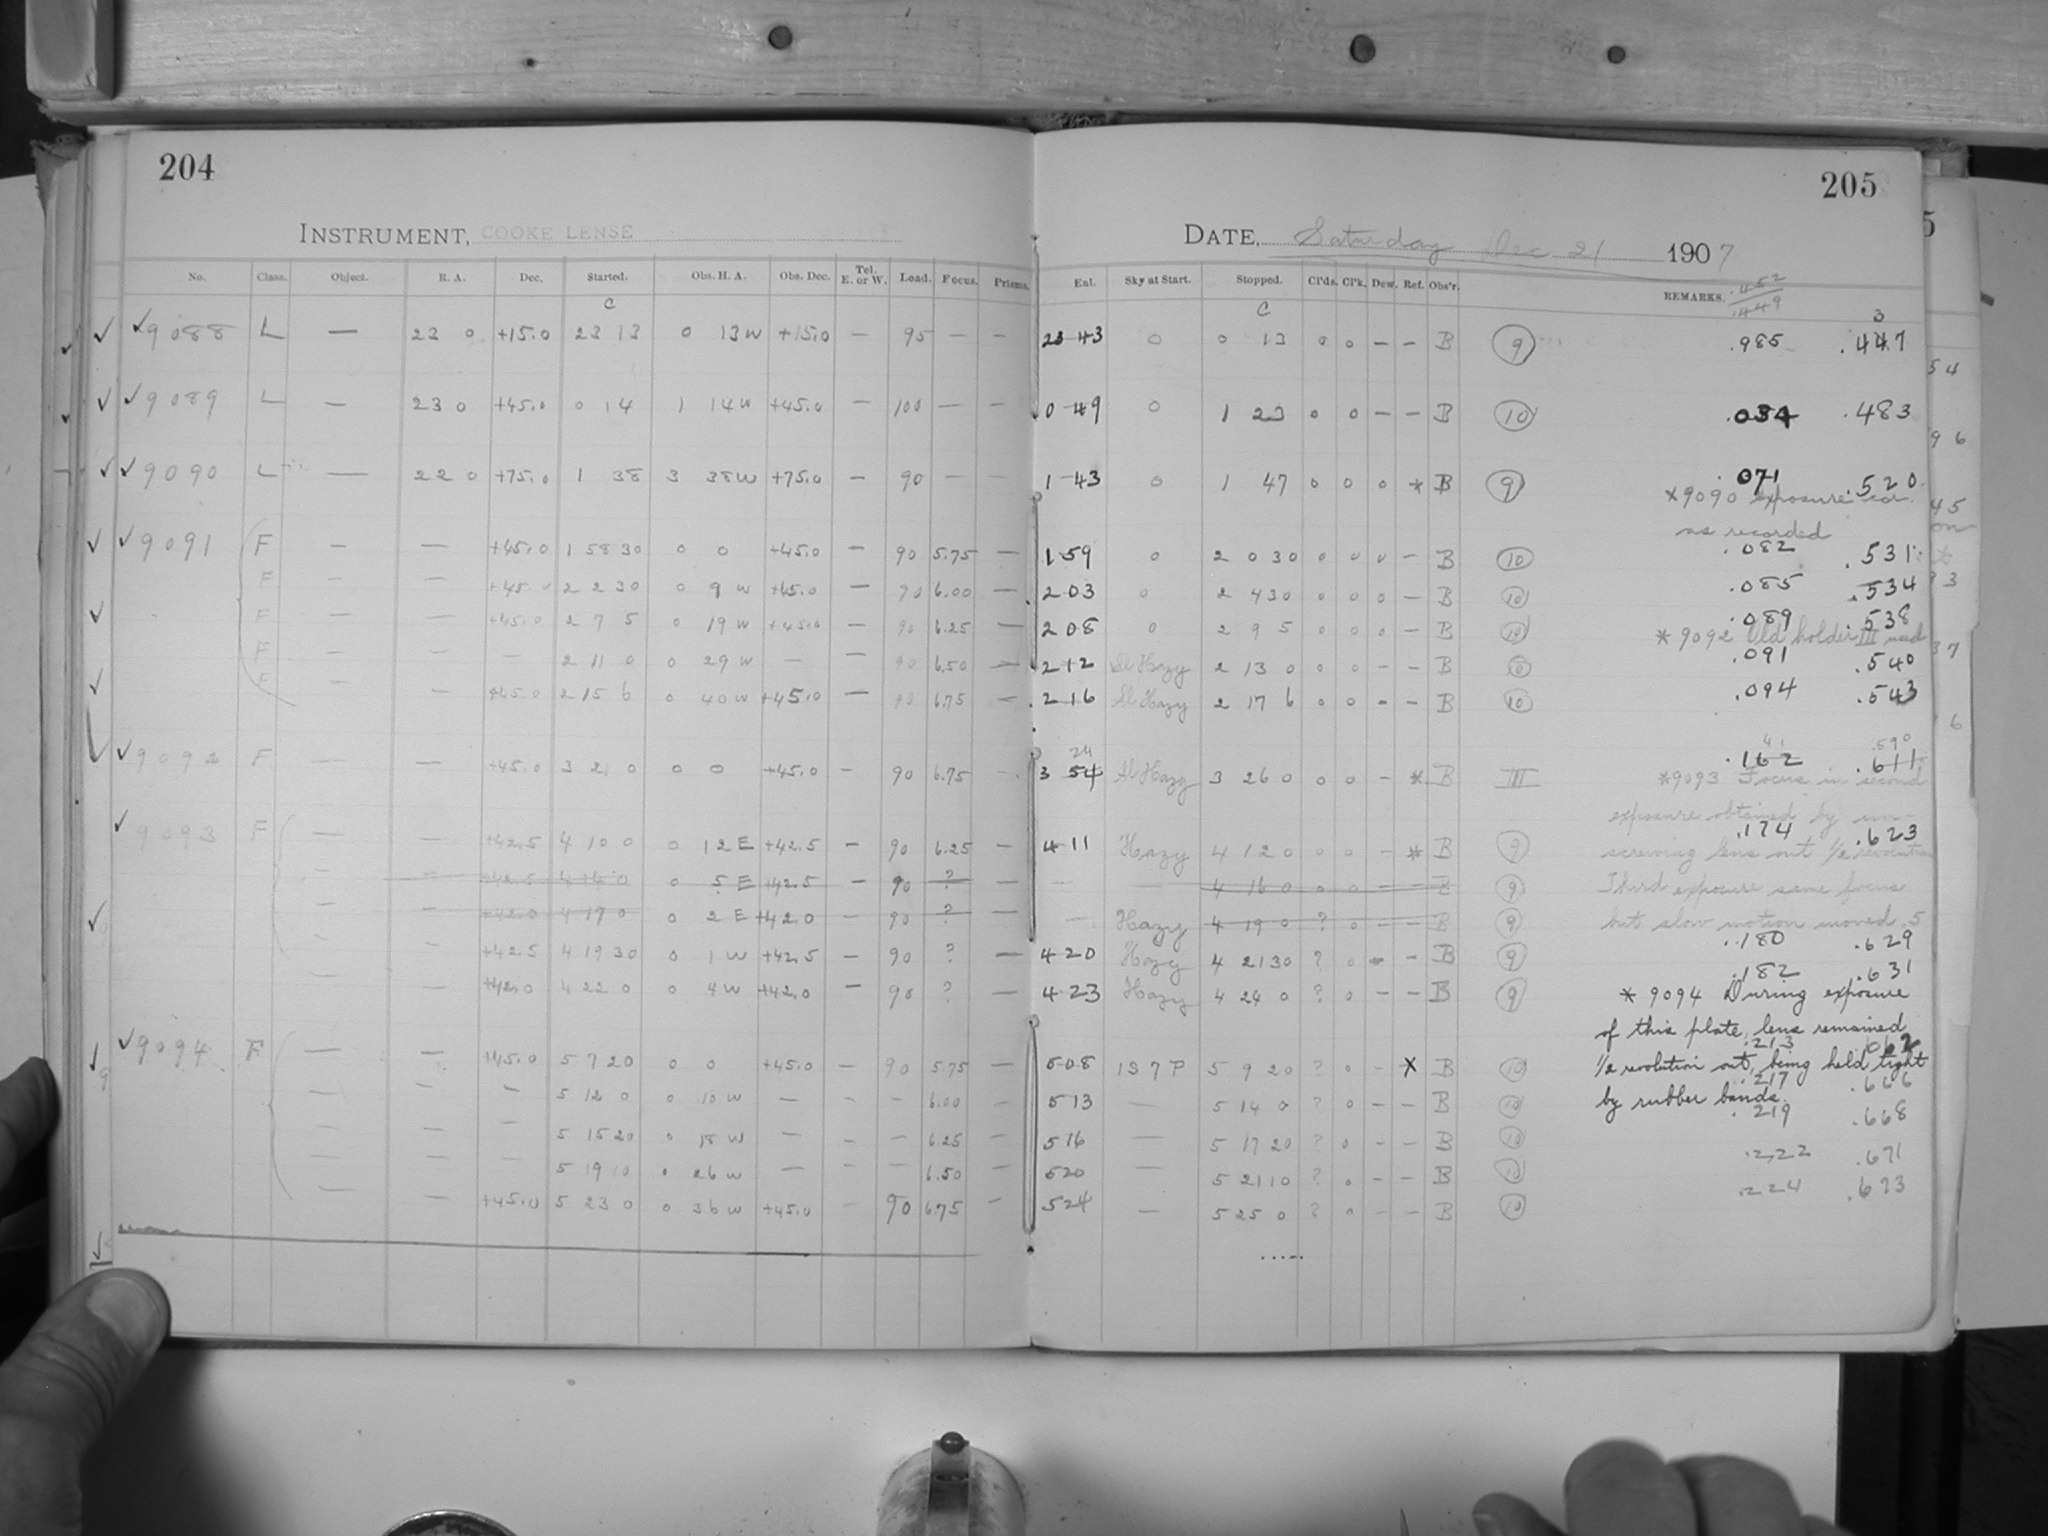 204
205
INSTRUMENT, COOKE LENSE
DATE, Saturday Dec 21 1907
No. Class. Object. R. A. Dec. Started. Obs. H. A. Obs. Dec. Tel. E. or W. Load. Focus. Prisms. Eal. Sky at Start. Stopped. Cl'ds. Cl'k. Dew. Ref. Obs'r. REMARKS. .452
.449
C C 3
✓ ✓9088 L — 23 0 +15.0 23 13 0 13W +15.0 — 95 — — 23 43 0 0 13 0 0 — — B 9 .985 .447
✓ ✓9089 L — 23 0 +45.0 0 14 1 14W +45.0 — 100 — — 0 49 0 1 23 0 0 — — B 10 .034 .483
✓ ✓9090 L — 22 0 +75.0 1 38 3 38W +75.0 — 90 — — 1 43 0 1 47 0 0 0 * B 9 .071 .520
*9090 exposure cor.
as recorded
✓ ✓9091 F — — +45.0 1 58 30 0 0 +45.0 — 90 5.75 — 1 59 0 2 0 30 0 0 0 — B 10 .082 .531
F — — +45.0 2 2 30 0 9 W +45.0 — 90 6.00 — 2 03 0 2 4 30 0 0 0 — B 10 .085 .534
✓ F — — +45.0 2 7 5 0 19 W +45.0 — 90 6.25 — 2 08 0 2 9 5 0 0 0 — B 10 .089 .538
*9092 Old holder III used
F — — — 2 11 0 0 29 W — — 90 6.50 — 2 12 Sl Hazy 2 13 0 0 0 — — B 10 .091 .540
✓ F — — +45.0 2 15 6 0 40 W +45.0 — 90 6.75 — 2 16 Sl Hazy 2 17 6 0 0 — — B 10 .094 .543
24 41 .590
✓ ✓9092 F — — +45.0 3 21 0 0 0 +45.0 — 90 6.75 — 3 54 Sl Hazy 3 26 0 0 0 — * B III .162 .611
*9093 Focus in second
exposure obtained by un-
✓9093 F — — +42.5 4 10 0 0 12 E +42.5 — 90 6.25 — 4 11 Hazy 4 12 0 0 0 — * B 9 .174 .623
screwing lens out 1/2 revolution
— — +42.5 4 14 0 0 5 E +42.5 — 90 ? — — — 4 16 0 0 0 — — B 9
Third exposure same focus
✓ — — +42.0 4 17 0 0 2 E +42.0 — 90 ? — — Hazy 4 19 0 ? 0 — — B 9
but slow motion moved .5
— — +42.5 4 19 30 0 1 W +42.5 — 90 ? — 4 20 Hazy 4 21 30 ? 0 — — B 9 .180 .629
— — +42.0 4 22 0 0 4 W +42.0 — 90 ? — 4 23 Hazy 4 24 0 ? 0 — — B 9 .182 .631
* 9094 During exposure
of this plate, lens remained
✓ ✓9094 F — — +45.0 5 7 20 0 0 +45.0 — 90 5.75 — 5 08 137 P 5 9 20 ? 0 — X B 10 .213 .662
1/2 revolution out, being held tight
— — — 5 12 0 0 10 W — — — 6.00 — 5 13 — 5 14 0 ? 0 — — B 10 .217 .666
by rubber bands.
— — — 5 15 20 0 18 W — — — 6.25 — 5 16 — 5 17 20 ? 0 — — B 10 .219 .668
— — — 5 19 10 0 26 W — — — 6.50 — 5 20 — 5 21 10 ? 0 — — B 10 .222 .671
— — +45.0 5 23 0 0 36 W +45.0 — 90 6.75 — 5 24 — 5 25 0 ? 0 — — B 10 .224 .673